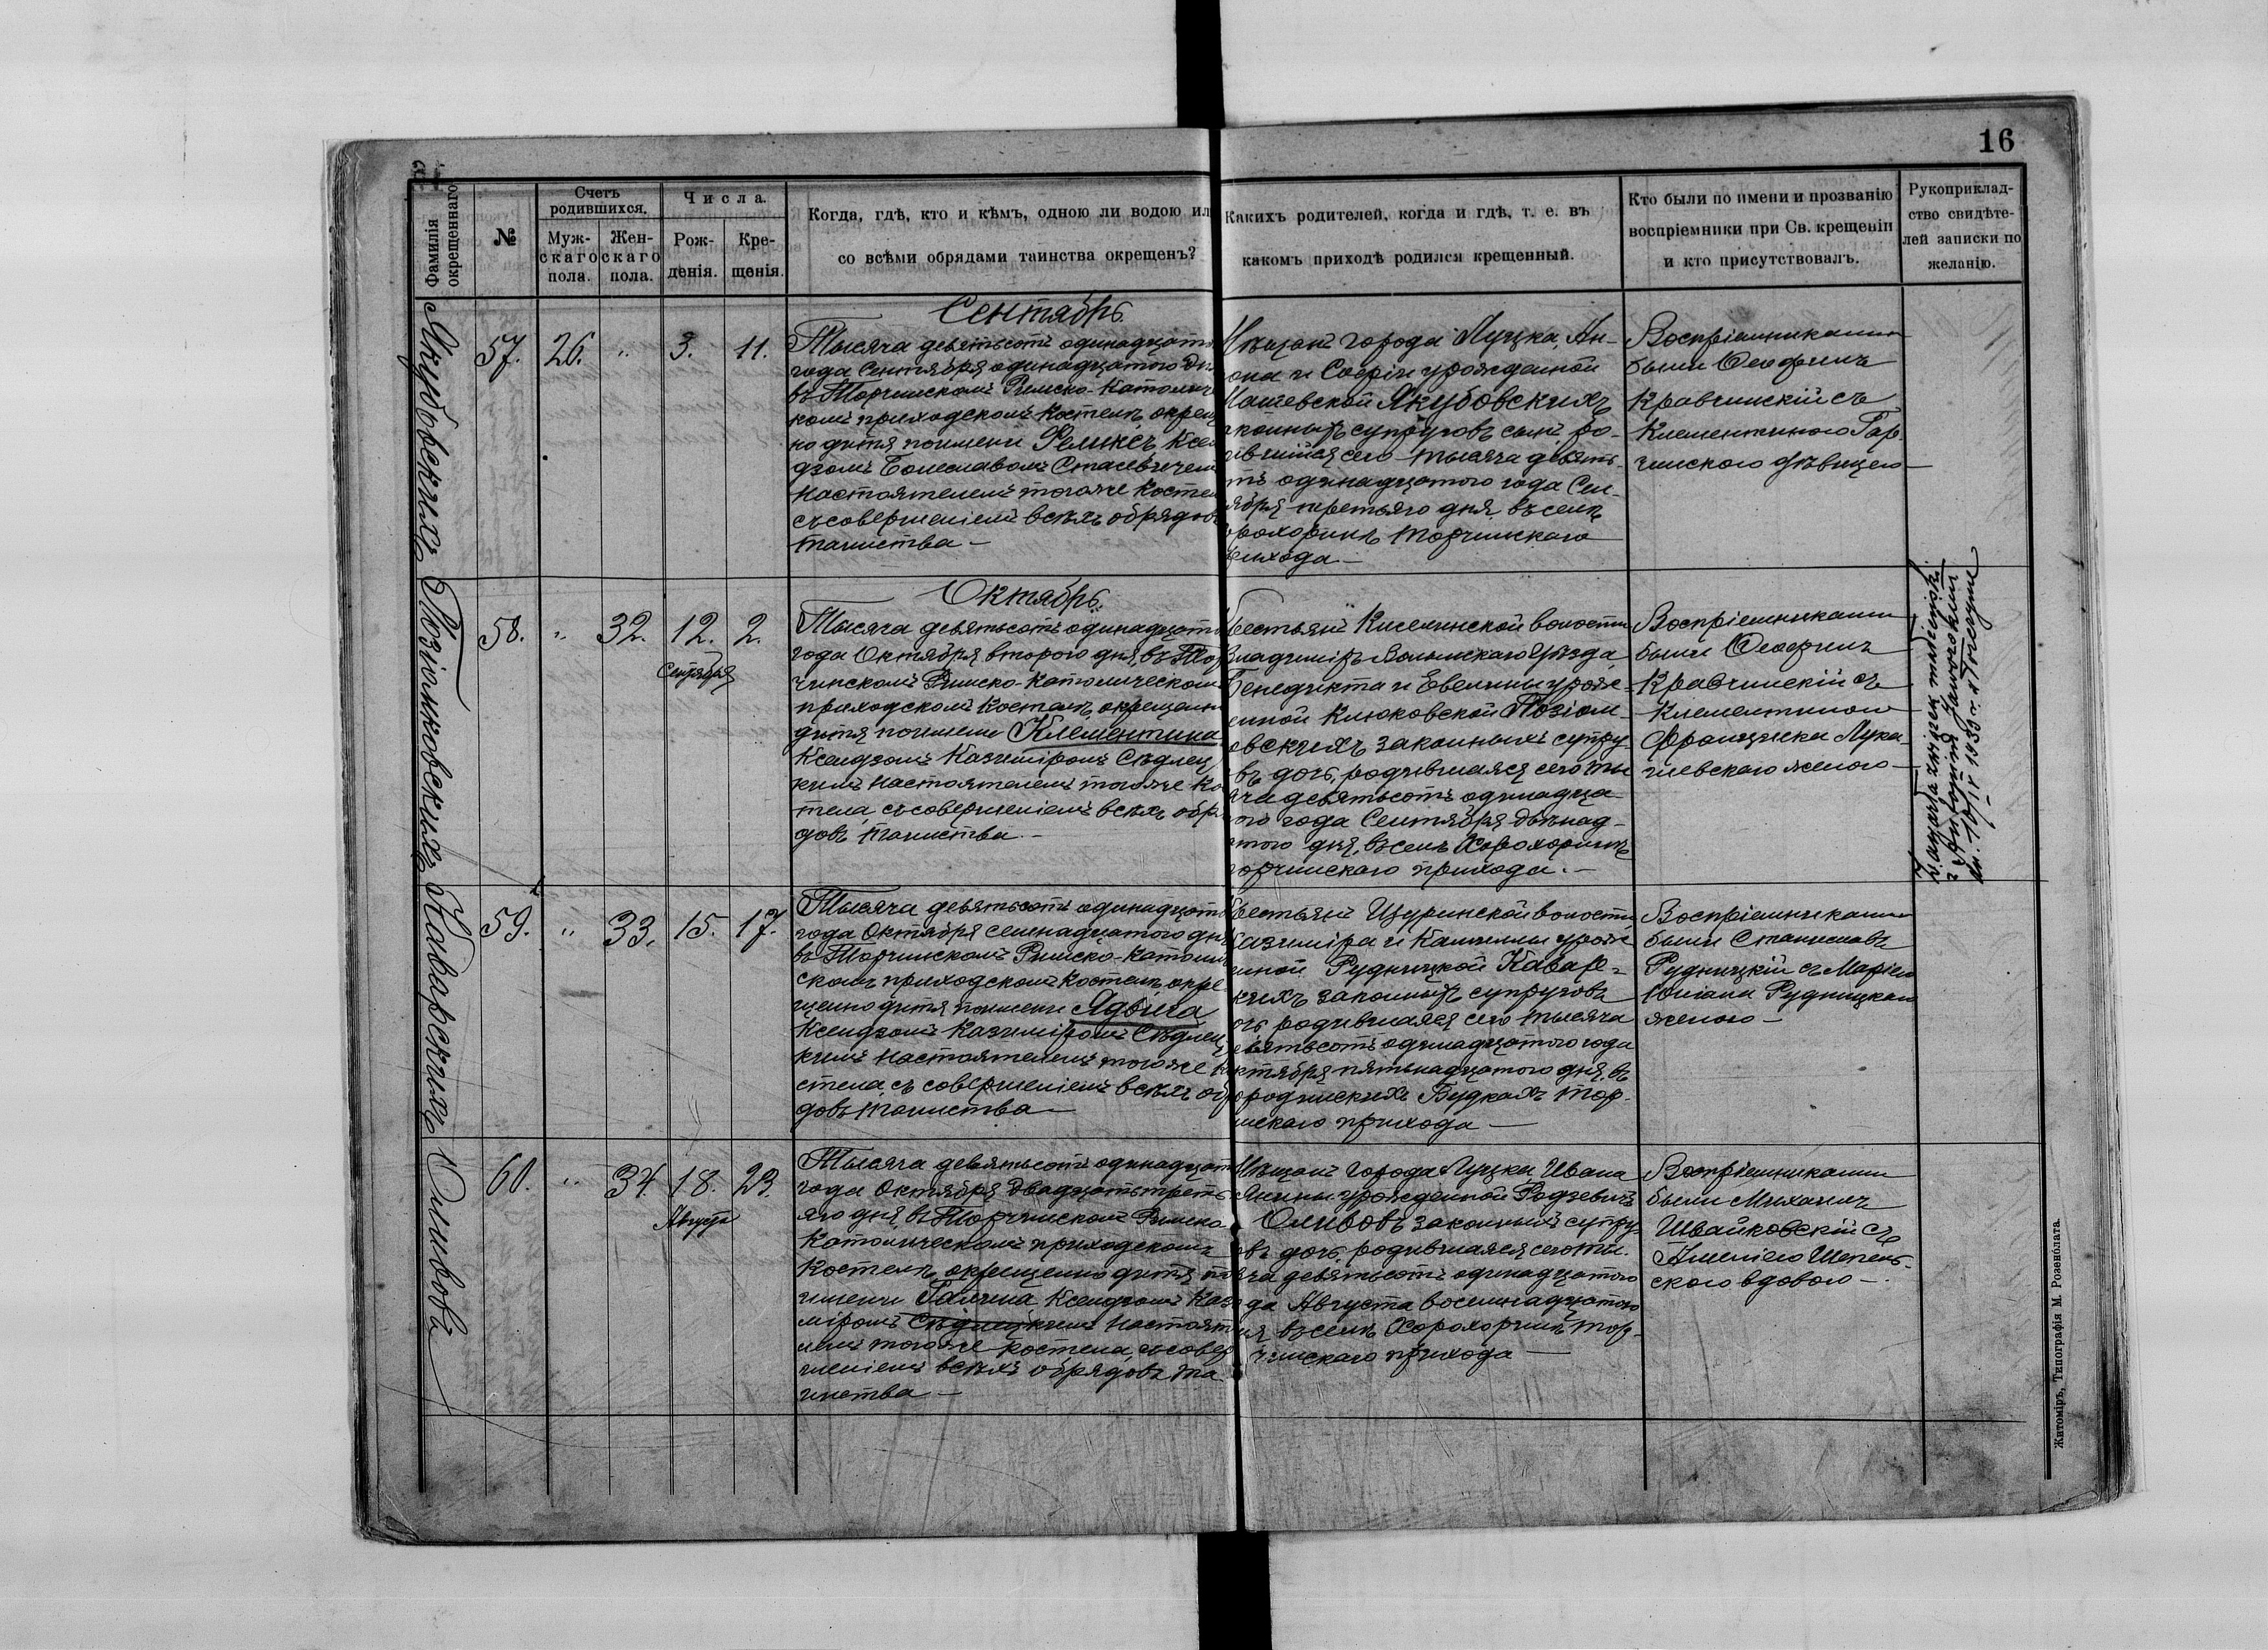 16
Фамилія окрещеннаго
№
Счетъ родившихся.
Муж-
скаго
пола.
Жен-
скаго
пола.
Числа.
Рож-
денія.
Кре-
щенія.
Когда, гдѣ, кто и кѣмъ, одною ли водою ил
со всѣми обрядами таинства окрещенъ?
Какихъ родителей, когда и гдѣ, т. е. въ
какомъ приходѣ родился крещенный.
Кто были по имени и прозванію
воспріемники при Св. крещеніи
и кто присутствовалъ.
Рукоприклад-
ство свидѣте-
лей записки по
желанію.
Якубовскихъ
57. 26. " 3. 11.
Сентябрь
Тысяча девятьсотъ одинадцато
года Сентября одинадцатого дн
въ Торчинскомъ Римско-Католич
комъ приходскомъ костелѣ, окрещ
но дитя по имени Феликсъ Ксен
дзомъ Болеславомъ Стасевичемъ
настоятелемъ тогоже косте
съ совершеніемъ всѣхъ обрядов
таинства —
Мѣщанъ города Луцка, Ан-
она и Софіи урожденной
Якубовскихъ
аконныхъ супруговъ сынъ, ро-
ившійся сего тысяча девять-
тъ одинадцатого года Сен-
ября третьяго дня въ селѣ
орохоринѣ Торчинскаго
рихода —
Воспріемниками
были Ѳеофилъ
Кравчинскій съ
Клементиною Гар
чинского дѣвицею —
Позіомковскихъ
58. " 32. 12. 2.
Сентября
Октябрь.
Тысяча девятьсотъ одинадцато
года Октября второго дня, въ Тор
чинскомъ Римско-Католическомъ
приходскомъ костелѣ, окрещенн
дитя по имени Клементина
Ксендзомъ Казиміромъ Сѣдлец
кимъ настоятелемъ тогоже ко
тела, съ совершеніемъ всѣхъ обря
довъ таинства —
рестьянъ Киселинской волости
Владиміръ Волынскаго уѣзда,
Бенедикта и Евелины урож-
енной Клюковской Позіом-
овскихъ законныхъ супру-
въ дочь, родившаяся сего ты
яча девятьсотъ одинадца-
ого года Сентября двѣнад-
атого дня, въ селѣ Хорохоринѣ
орчинскаго прихода. —
Воспріемниками
были Ѳеофилъ
Кравчинскій съ
Клементиною
Францишка Лука-
шевскаго женою —
Каварскихъ
59. " 33. 15. 17.
Тысяча девятьсотъ одинадцато
года Октября семнадцатого дня
въ Торчинскомъ Римско-Католич
скомъ приходскомъ костелѣ, окре-
щенно дитя по имени Ядвига
Ксендзомъ Казиміромъ Сѣдлец
кимъ настоятелемъ тогоже к
стела, съ совершеніемъ всѣхъ об
довъ таинства —
рестьянъ Щуринской волости
Казиміра и Камиллы урож
нной Рудницкой Кавар-
кихъ законныхъ супруговъ
очь родившаяся сего тысяча
евятьсотъ одинадцатого года
ктября пятьнадцатого дня, въ
ородинскихъ Будкахъ Тор-
инскаго прихода —
Воспріемниками
были Станиславъ
Рудницкій съ Маріею
Юліана Рудницкаго
женою —
Оливовъ
60. " 34. 18. 23.
Августа
Тысяча девятьсотъ одинадцато
года Октября двадцать треть
яго дня въ Торчинскомъ Римско-
Католическомъ приходскомъ
костелѣ, окрещенно дитя по
имени Галина Ксендзомъ Кази
міромъ Сѣдлецкимъ настояте
лемъ тогоже костела, съ совер
шеніемъ всѣхъ обрядовъ та
инства —
Мѣщанъ города Луцка Ивана
Янины урожденной Родзевичъ
Оливовъ законныхъ супру-
овъ дочь, родившаяся сего ты-
яча девятьсотъ одинадцатого
да Августа восемнадцатого
ня въ селѣ Хорохоринѣ Тор-
чинскаго прихода —
Воспріемниками
были Михаилъ
Швайковскій съ
Шепель-
ского вдовою —
Житоміръ, Типографія М. Розенолата